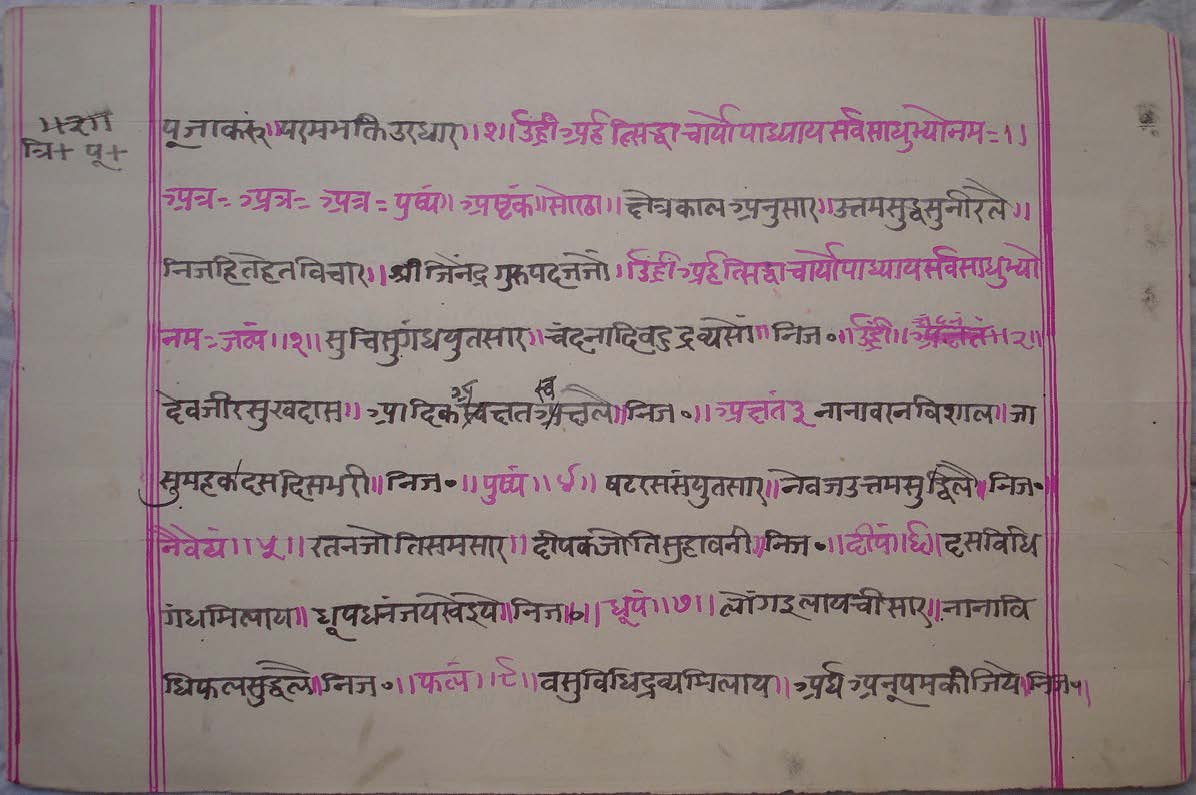 ॥२॥
त्रि+ पू+
पूजाकरुं॥परमभक्तिउरधार॥१॥उंह्रीअर्हत्सिद्धाचार्योपाध्यायसर्वसाधुभ्योनम=।
अत्र= अत्र= अत्र= पुष्पं॥ अष्टकं॥सोरठा॥ क्षेत्रकाल अनुसार॥उत्तमसुद्धसुनीरले॥
निजहितहेतविचार॥श्रीजिनेंद्रगुरुपदजजों॥उंह्रीअर्हत्सिद्धाचार्योपाध्यायसर्वसाधुभ्यो
नम= जलं॥१॥ सुचिसुगंधयुतसार॥चंदनादिवहुद्रव्यसों॥निज॰॥उंह्रीं॥ चंदनं॥२॥
देवजीरसुखदास॥ आदिक अक्षत स्वक्षले॥निज॰॥अक्षतं३ नानावरनविशाल॥जा
सुमहकदसदिसभरी॥निज॰॥पुष्पं॥४॥ षटरससंयुतसार॥नेवजउत्तमसुद्धिले॥निज॰
नैवेद्यं॥५॥रतनजोतिसमसार॥दीपकजोतिसुहावनी॥निज॰॥दीपं॥६॥दसविधि
गंधमिलाय॥धूपधनंजयखेइये॥निज॰॥धूपं॥७॥लोंगइलायचीसार॥नानावि
धिफलसुद्धले॥निज॰॥फलं॥८॥वसुविधिद्रव्यमिलाय॥अर्घ अनूपमकीजिये॥निज॰